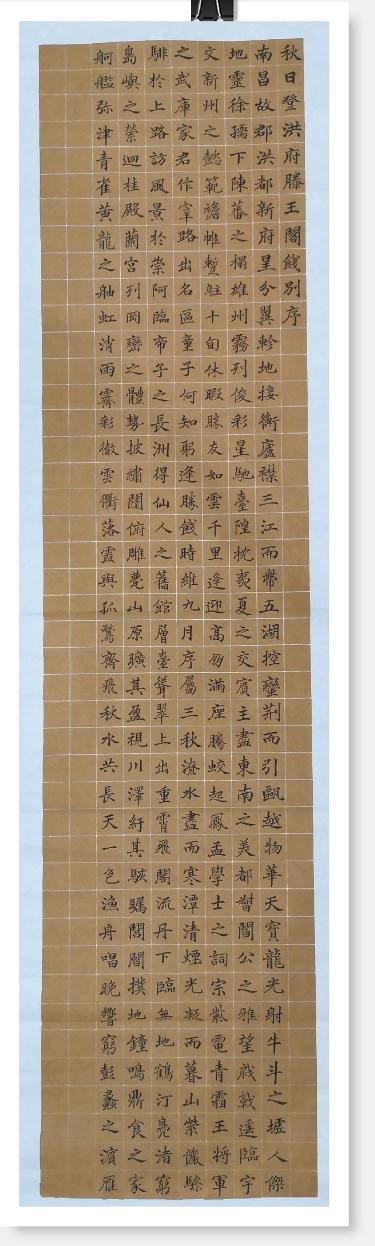 秋日登洪府滕王閣餞別序
南昌故郡洪都新府星分翼軫地接衡廬襟三江而帶五湖控蠻荊而引甌越物華天寶龍光射牛斗之墟人傑
地靈徐孺下陳蕃之榻雄州霧列俊彩星馳臺隍枕夷夏之交賓主盡東南之美都督閻公之雅望棨戟遙臨宇
文新州之懿範襜帷暫駐十旬休暇勝友如雲千里逢迎高朋滿座騰蛟起鳳孟學士之詞宗紫電青霜王將軍
之武庫家君作宰路出名區童子何知躬逢勝餞時維九月序屬三秋潦水盡而寒潭清煙光凝而暮山紫儼驂
騑於上路訪風景於崇阿臨帝子之長洲得仙人之舊館層臺聳翠上出重霄飛閣流丹下臨無地鶴汀鳧渚窮
島嶼之縈迴桂殿蘭宮列岡巒之體勢披繡闥俯雕甍山原曠其盈視川澤紆其駭矚閭閻撲地鐘鳴鼎食之家
舸艦弥津青雀黃龍之舳虹消雨霽彩徹雲衢落霞與孤鶩齊飛秋水共長天一色漁舟唱晚響窮彭蠡之濱雁